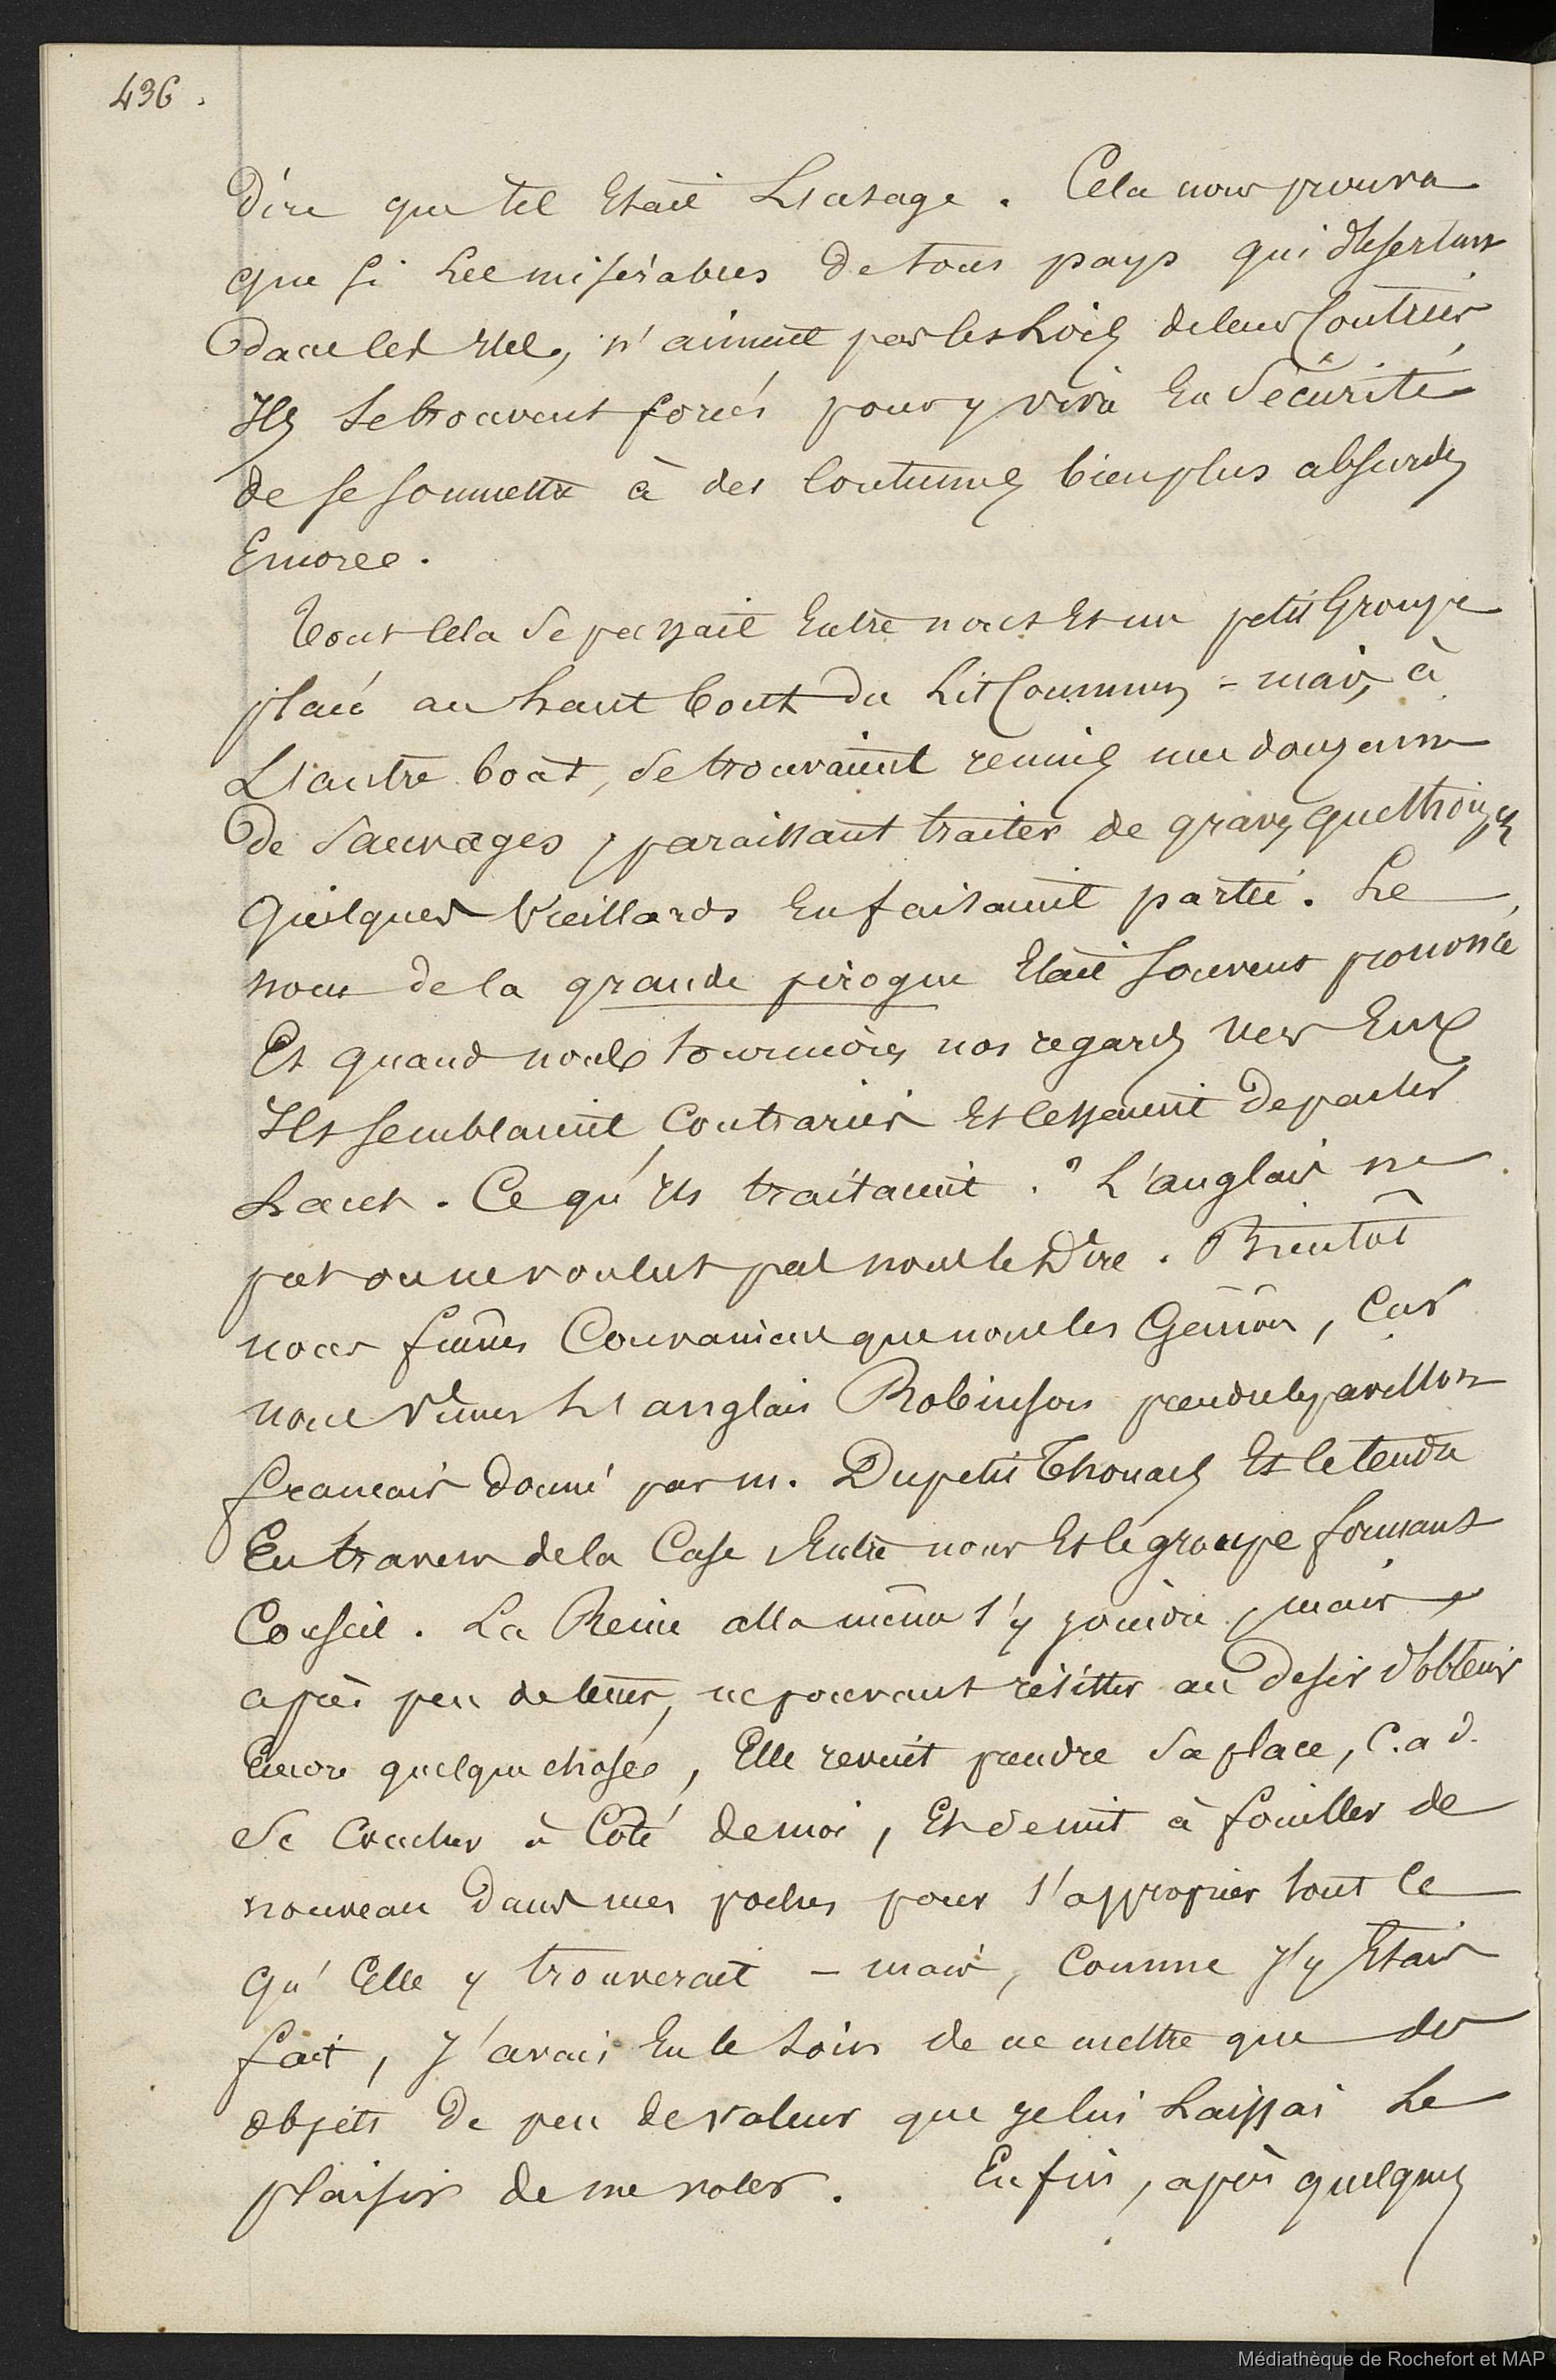 436.
Dire que tel Etait L'usage. Cela nous prouva
que si les misérables de tous pays qui désertent
Dans les Iles, n'aiment pas les Loix de leurs Contrées,
Ils se trouvent forcés pour y vivre En Sécurité
de se soumettre à des Coutumes bien plus absurdes
Encore.
Tout Cela se passait Entre nous Et un petit Groupe
placé au haut bout du Lit Commun = mais, à
L'autre bout, se trouvaient réunis une douzaine
De Sauvages, paraissant traiter de graves questions,
Quelques Vieillards En faisaient partie. Le
nom de la grande pirogue Etait souvent prononcé
Et quand nous tournions nos regards vers Eux
Ils semblaient Contrariés Et cessaient de parler
haut. Ce qu'ils traitaient.? L'anglais ne
put ou ne voulut pas nous le Dire. Bientôt
nous fûmes Convaincus que nous les Gênions, Car
nous vîmes L'anglais Robinson prendre le pavillon
français donné par M. Dupetit Thouars Et le tendre
En travers de la Case Entre nous Et le groupe formant
Conseil. La Reine alla même s'y joindre, mais,
après peu de tems, ne pouvant résister au Desir d'obtenir
Encore quelque chose, Elle revint prendre sa place, C.a d.
se Coucher à Côté de moi, Et se mit à fouiller de
nouveau dans mes poches pour s'approprier tout Ce
qu'Elle y trouverait – mais, Comme J'y Etais
fait, J'avais Eu le soin de ne mettre que des
objets de peu de valeur que je lui Laissai Le
plaisir de me voler. Enfin, après quelques
Médiathèque de Rochefort et MAP